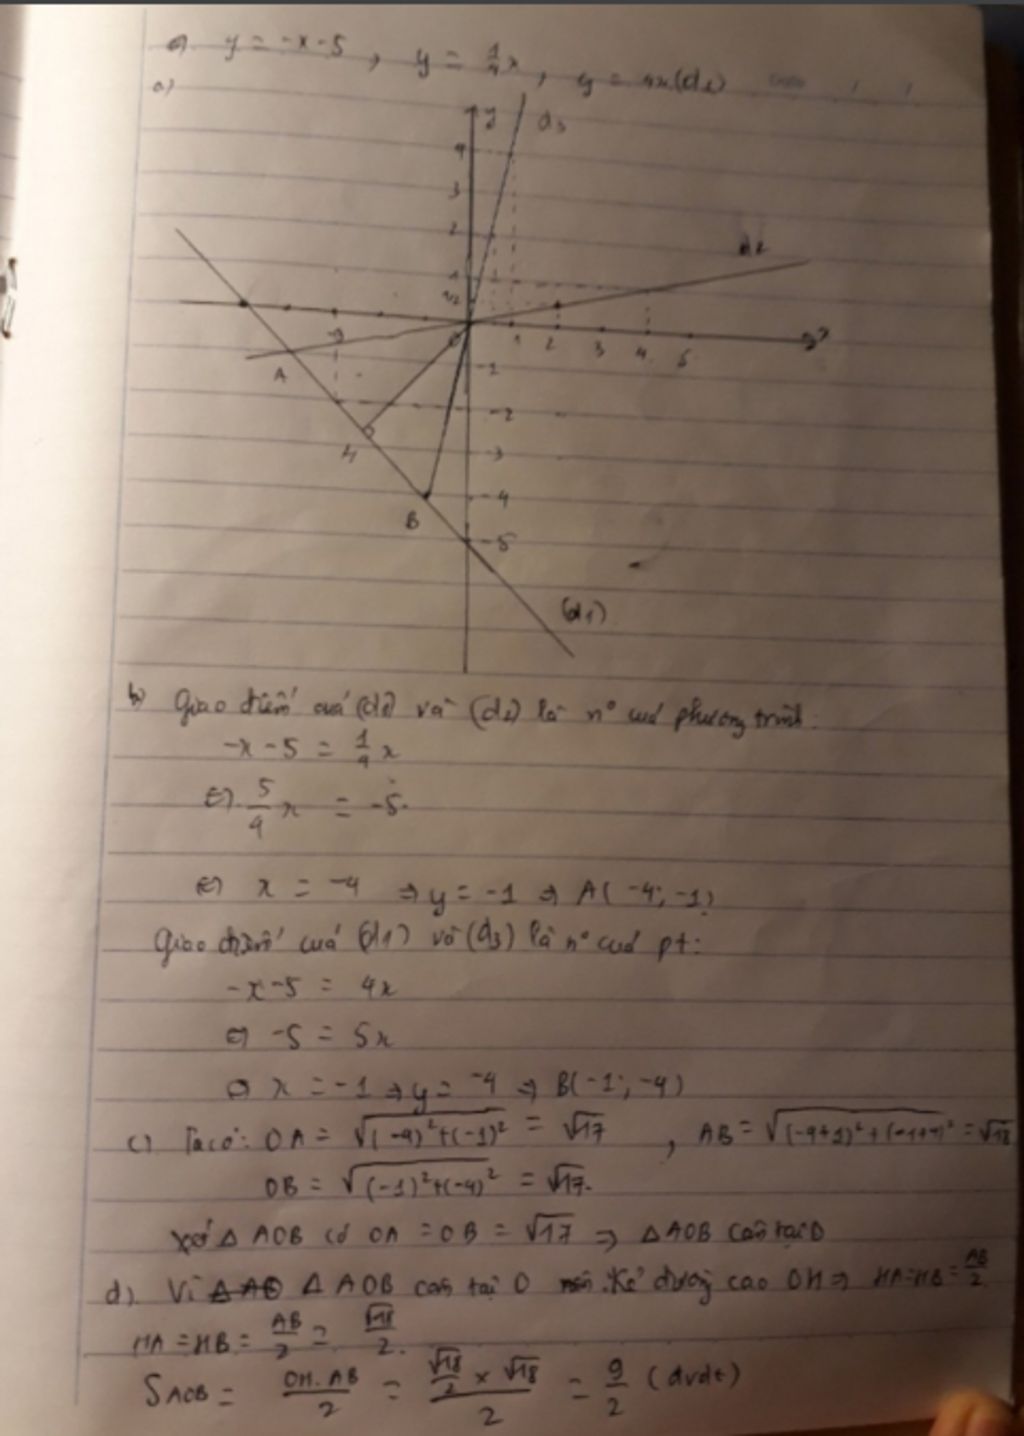 y = -x-5, y = 1/4 x, y = 4x (d2)
a)
y
d3
4
3
2
d2
1
1/2
-3
O
1 2 3 4 5
x
-1
A
-2
H
-3
-4
B
-5
(d1)
b) Giao điểm cuả (d1) và (d2) là n° cuả phương trình:
-x-5 = 1/4 x
⇔ 5/4 x = -5.
⇔ x = -4 ⇒ y = -1 ⇒ A(-4; -1)
Giao điểm cuả (d1) và (d3) là n° cuả pt:
-x-5 = 4x
⇔ -5 = 5x
⇔ x = -1 ⇒ y = -4 ⇒ B(-1; -4)
c) Ta có: OA = √((-4)²+(-1)²) = √17, AB = √((-4+1)²+(-1+4)²) = √18
OB = √((-1)²+(-4)²) = √17.
Xét Δ AOB có OA = OB = √17 ⇒ Δ AOB cân tại O
d). Vì Δ AOB cân tại O nên. Kẻ đường cao OH ⇒ HA=HB = AB/2
HA = HB = AB/2 = √18/2.
S AOB = OH.AB/2 = (√18/2 × √18)/2 = 9/2 (đvdt)